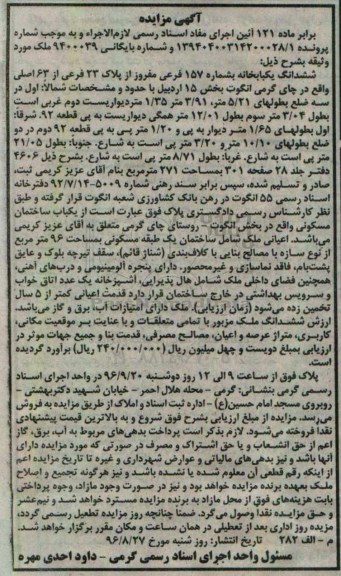 آگهی مزایده
برابر ماده ۱۲۱ آئین اجرای مفاد اسناد رسمی لازم‌الاجراء و به موجب شماره
پرونده ۱۳۹۴۰۴۰۰۳۱۴۲۰۰۰۲۸/۱ و شماره بایگانی ۹۴۰۰۰۳۹ ملک مورد
وثیقه بشرح ذیل:
ششدانگ یکبابخانه بشماره ۱۵۷ فرعی مفروز از پلاک ۲۳ فرعی از ۶۳ اصلی
واقع در چای گرمی انگوت بخش ۱۵ اردبیل با حدود و مشخصات شمالا: اول در
سه ضلع بطولهای ۵/۲۱ متر، ۳/۹۱ متر ۱/۳۵ متردیواریست دوم غربی است
بطول ۳/۰۴ متر سوم بطول ۱۲/۰۱ متر همگی دیواریست به پی قطعه ۹۲. شرقا:
اول بطولهای ۱/۶۵ متر دیوار به پی و ۱/۲۰ متر پی به پی قطعه ۹۲ دوم در دو
ضلع بطولهای ۱۰/۱۰ متر و ۳/۲۰ متر پی است به شارع. جنوبا: بطول ۲۱/۰۵
متر پی است به شارع. غربا: بطول ۸/۷۱ متر پی است به شارع. بشرح ذیل ۴۶۰۶
دفتر جلد ۲۸ صفحه ۳۰۱ بمساحت ۲۷۱ مترمربع بنام آقای عزیز کریمی ثبت،
صادر و تسلیم شده، سپس برابر سند رهنی شماره ۵۰۰۹-۹۲/۷/۱۴ دفترخانه
اسناد رسمی ۵۵ انگوت در رهن بانک کشاورزی شعبه انگوت قرار گرفته و طبق
نظر کارشناس رسمی دادگستری پلاک فوق عبارت است از یکباب ساختمان
مسکونی واقع در بخش انگوت – روستای چای گرمی متعلق به آقای عزیز کریمی
می‌باشد. اعیانی ملک شامل ساختمان یک طبقه مسکونی بمساحت ۹۶ متر مربع
از نوع سازه با مصالح بنایی با کلاف‌بندی (شناژ قائم)، سقف تیرچه بلوک و عایق
پشت‌بام، فاقد نماسازی و غیرمحصور، دارای پنجره آلومینیومی و درب‌های آهنی،
همچنین فضای داخلی ملک شامل هال پذیرایی، آشپزخانه یک عدد اتاق خواب
و سرویس بهداشتی در خارج ساختمان قرار دارد قدمت اعیانی کمتر از ۵ سال
تخمین زده می‌شود (زمان ارزیابی). ملک دارای امتیازات آب، برق و گاز می‌باشد.
ارزش ششدانگ ملک مزبور با تمامی متعلقات و با عنایت بر موقعیت مکانی،
کاربری، متراژ عرصه و اعیان، مصالح مصرفی، قدمت بنا و جمیع جهات موثر در
ارزیابی بمبلغ دویست و چهل میلیون ریال (۲۴۰/۰۰۰/۰۰۰ ریال) برآورد گردیده
است.
پلاک فوق از ساعت ۹ الی ۱۲ روز دوشنبه ۹۶/۹/۲۰ در واحد اجرای اسناد
رسمی گرمی بنشانی: گرمی – محله هلال احمر – خیابان شهید دکتربهشتی –
روبروی مسجد امام حسین(ع) – اداره ثبت اسناد و املاک از طریق مزایده به فروش
می‌رسد. مزایده از مبلغ ارزیابی بشرح فوق شروع و به بالاترین قیمت پیشنهادی
نقدا فروخته می‌شود. لازم بذکر است پرداخت بدهی‌های مربوط به آب، برق، گاز
اعم از حق انشعاب و یا حق اشتراک و مصرف در صورتی که مورد مزایده دارای
آنها باشد و نیز بدهی‌های مالیاتی و عوارض شهرداری و غیره تا تاریخ مزایده اعم
از اینکه رقم قطعی آن معلوم شده یا نشده باشد و نیز هرگونه تجمیع و اصلاح
ملک بعهده برنده مزایده خواهد بود و نیز در صورت وجود مازاد، وجوه پرداختی
بابت هزینه‌های فوق از محل مازاد به برنده مزایده مسترد خواهد شد و نیم‌عشر
و حق مزایده نقدا وصول می‌گردد. ضمنا چنانچه روز مزایده تعطیل رسمی گردد،
مزایده روز اداری بعد از تعطیلی در همان ساعت و مکان مقرر برگزار خواهد شد.
م – الف ۲۸۲ تاریخ انتشار: روز شنبه مورخ ۹۶/۸/۲۷
مسئول واحد اجرای اسناد رسمی گرمی – داود احدی مهره